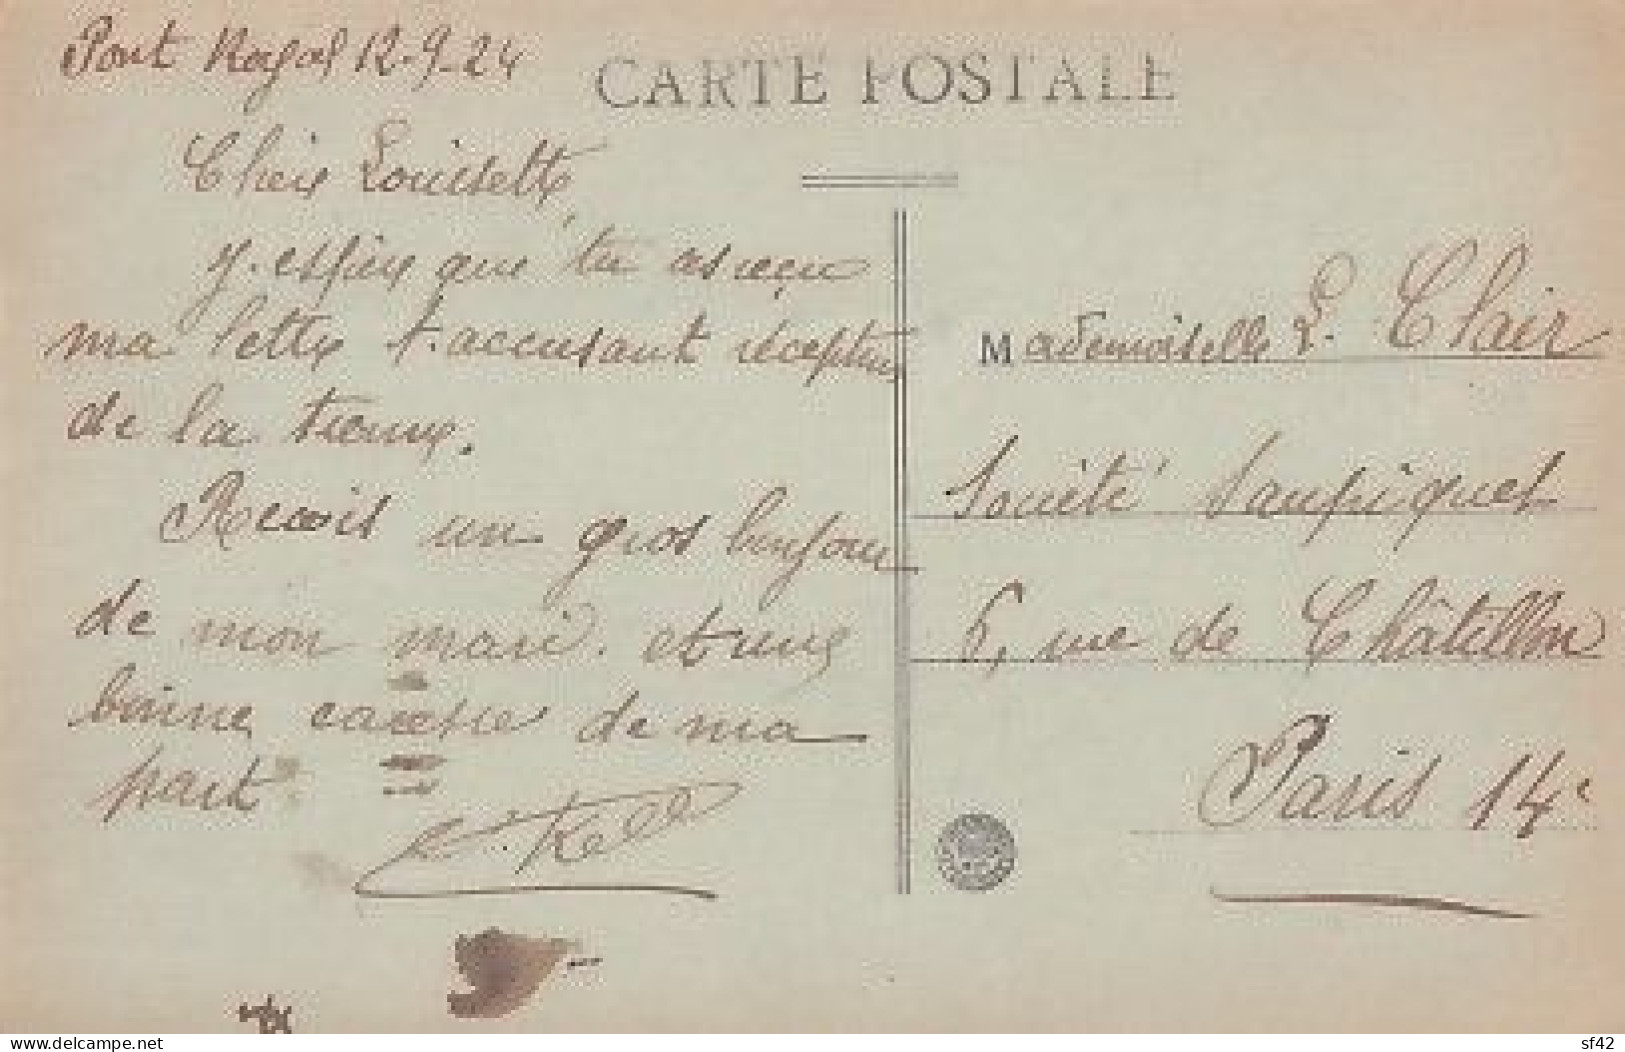 Pont Royal 12-9-24
CARTE POSTALE
Chère Louisette,
J'espère que tu as reçu
ma lettre t'accusant réception
de la tienne.
Recois un gros bonjour
de mon mari et une
bonne caresse de ma
part.
Kell
Mademoiselle L. Clair
Société Saupiquet
6, rue de Châtillon
Paris 14e
delcampe.net
sf42